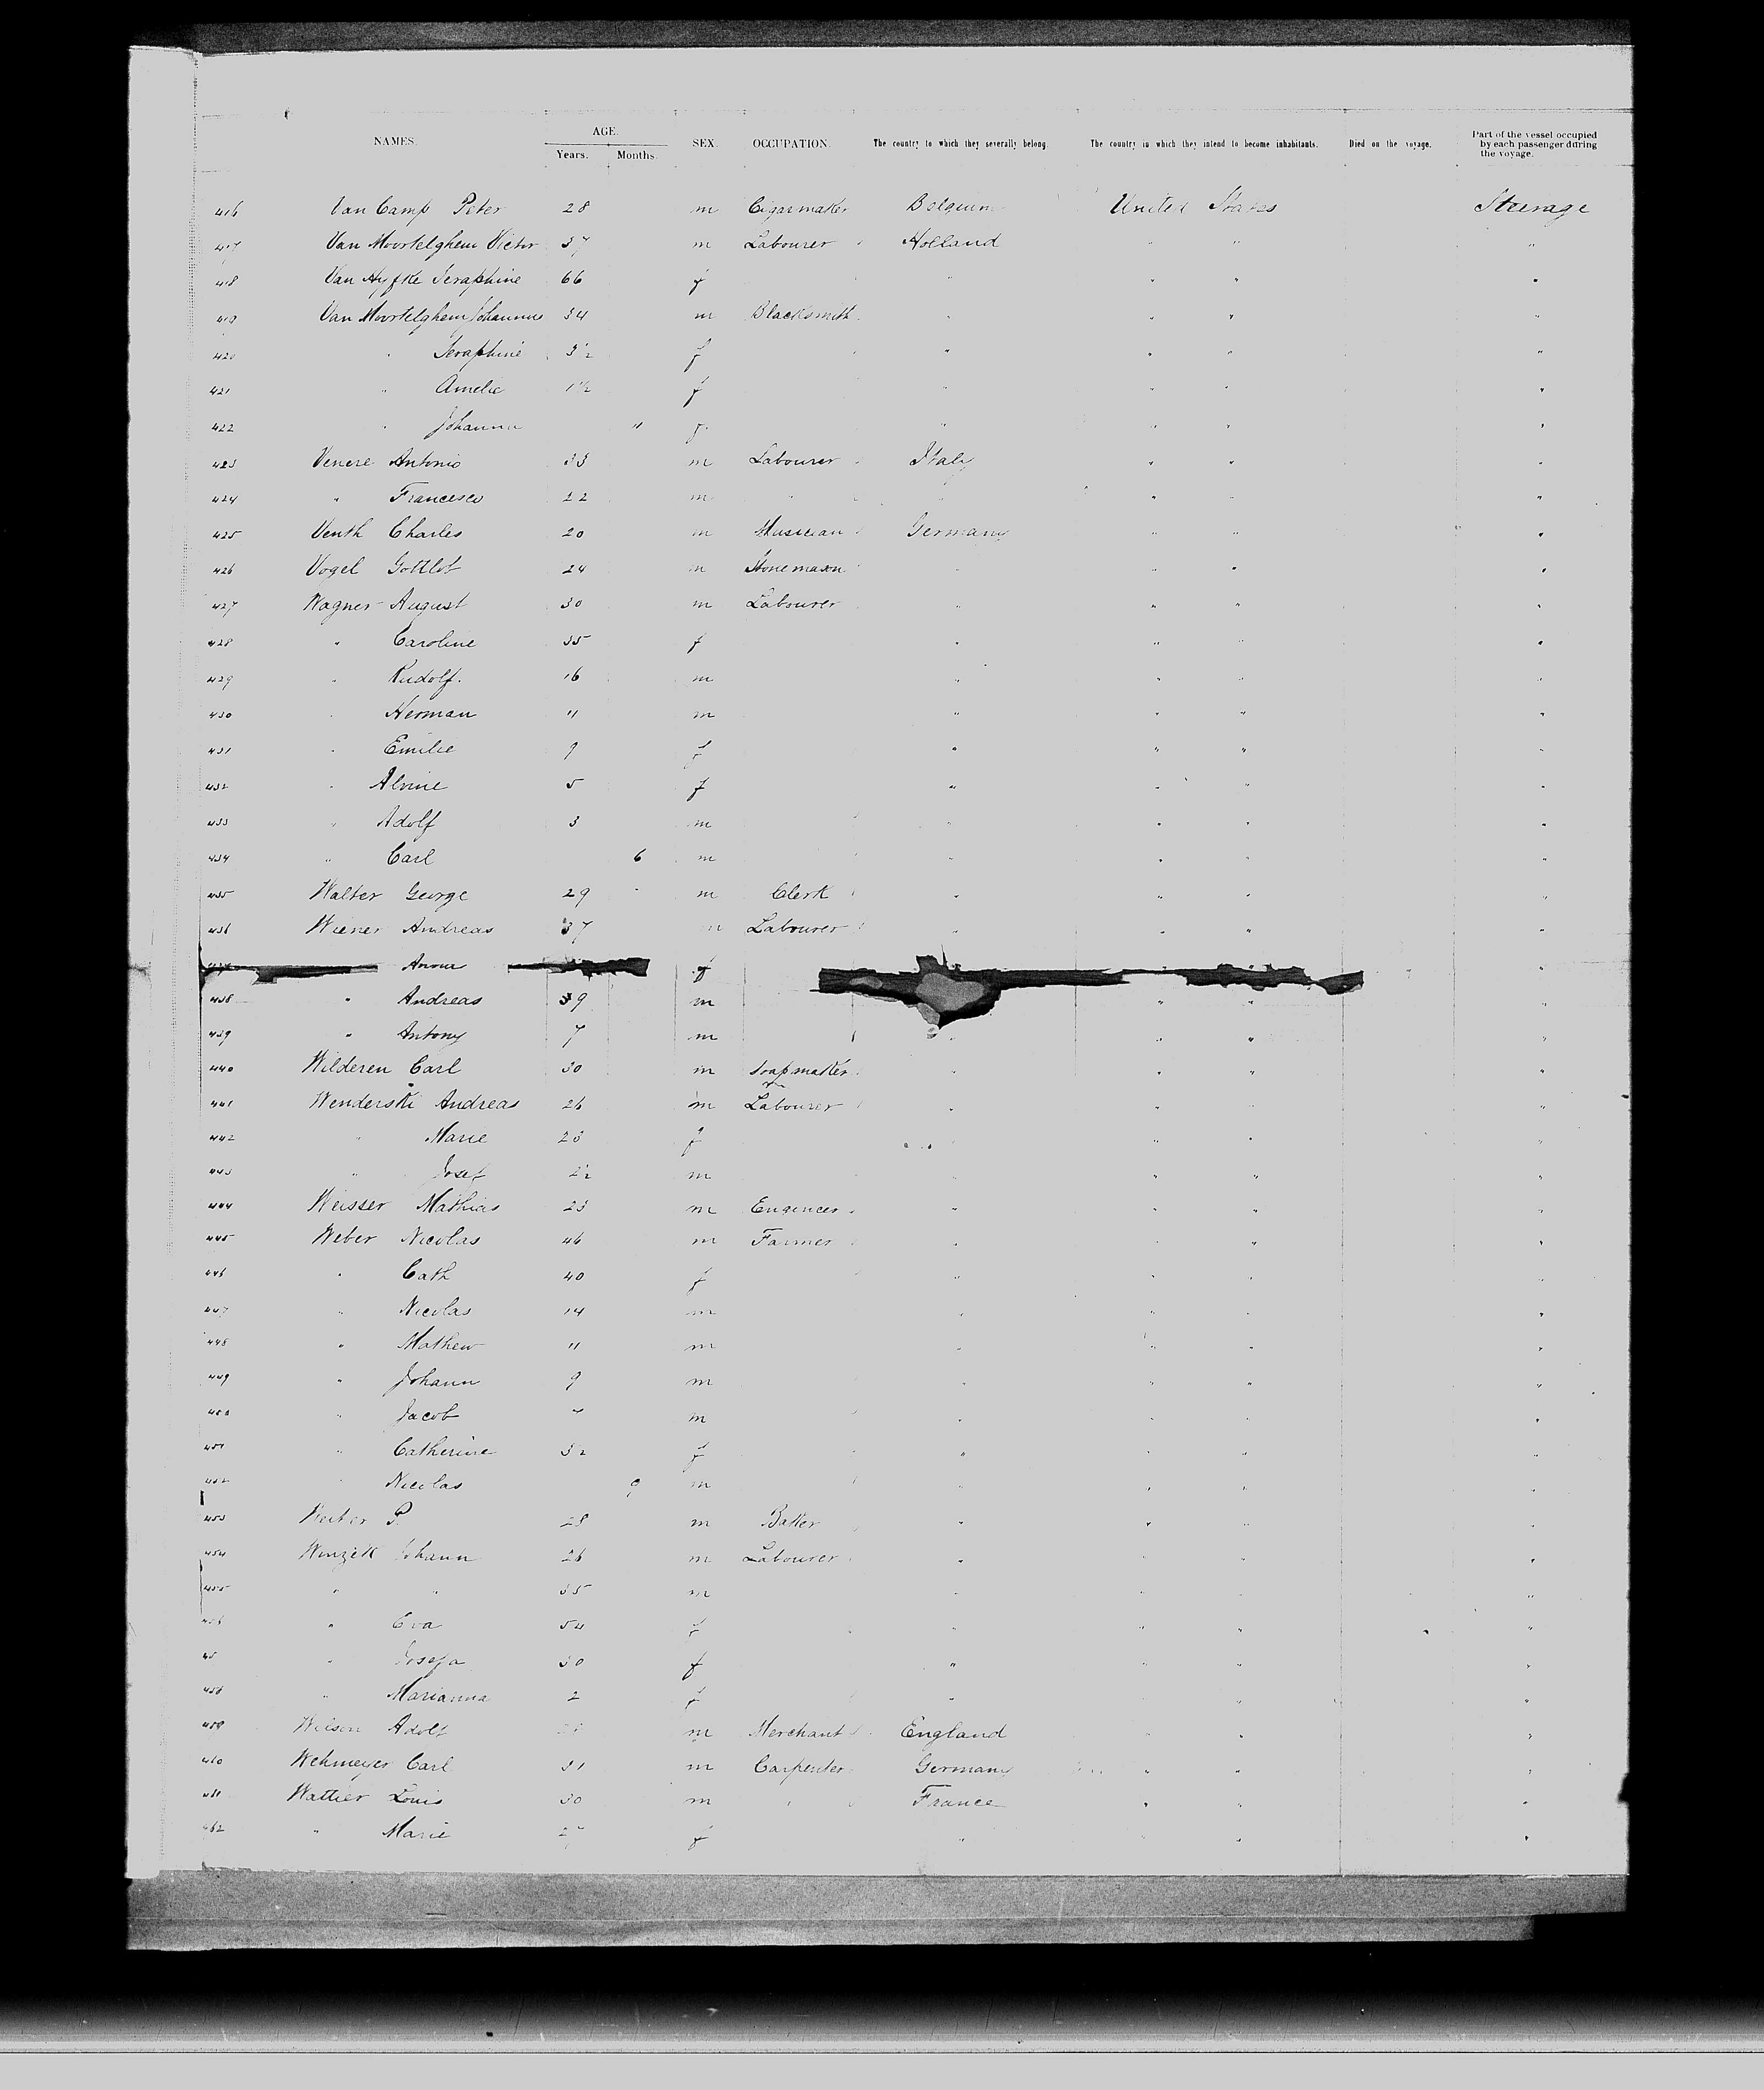 NAMES. AGE. Years. Months. SEX. OCCUPATION. The country to which they severally belong. The country in which they intend to become inhabitants. Died on the voyage. Part of the vessel occupied by each passenger during the voyage.
416 Van Camp Peter 28 m Cigarmaker Belgium United States Steerage
417 Van Moortelghem Victor 37 m Labourer Holland " " "
418 Van Seraphine 66 f " " " "
419 Van Moortelghem Johannus 34 m Blacksmith " " " "
420 " Seraphine 3½ f " " " "
421 " Amelie 1½ f " " " "
422 " Johanna 11 f " " " "
423 Venere Antonio 33 m Labourer Italy " " "
424 " Francesco 22 m " " " " "
425 Venth Charles 20 m Musician Germany " " "
426 Vogel Gottlob 24 m Stonemason " " " "
427 Wagner August 30 m Labourer " " " "
428 " Caroline 35 f " " " "
429 " Rudolf 16 m " " " "
430 " Herman 11 m " " " "
431 " Emilie 9 f " " " "
432 " Alvine 5 f " " " "
433 " Adolf 3 m " " " "
434 " Carl 6 m " " " "
435 Walter George 29 m Clerk " " " "
436 Wiener Andreas 37 m Labourer " " " "
Anna f " "
438 " Andreas 9 m " " "
439 " Antony 7 m " " " "
440 Wilderen Carl 30 m Soapmaker " " " "
441 Wenderski Andreas 26 m Labourer " " " "
442 " Marie 23 f " " " "
443 " Josef 2½ m " " " "
444 Weisser Mathias 23 m Engineer " " " "
445 Weber Nicolas 46 m Farmer " " " "
446 " Cath 40 f " " " "
447 " Nicolas 14 m " " " "
448 " Mathew 11 m " " " "
449 " Johann 9 m " " " "
450 " Jacob m " " " "
451 " Catherine 3½ f " " " "
452 " Nicolas 9 m " " " "
453 P. 28 m Baker " " " "
454 Winzek Johann 26 m Labourer " " " "
455 " " 35 m " " " "
456 " Eva 54 f " " " "
45 " Josefa 30 f " " " "
458 " Marianna 2 f " " " "
459 Wilson Adolf m Merchant England " " "
460 Wehmeyer Carl 31 m Carpenter Germany " " "
461 Wattier Louis 30 m " France " " "
462 " Marie 27 f " " " "